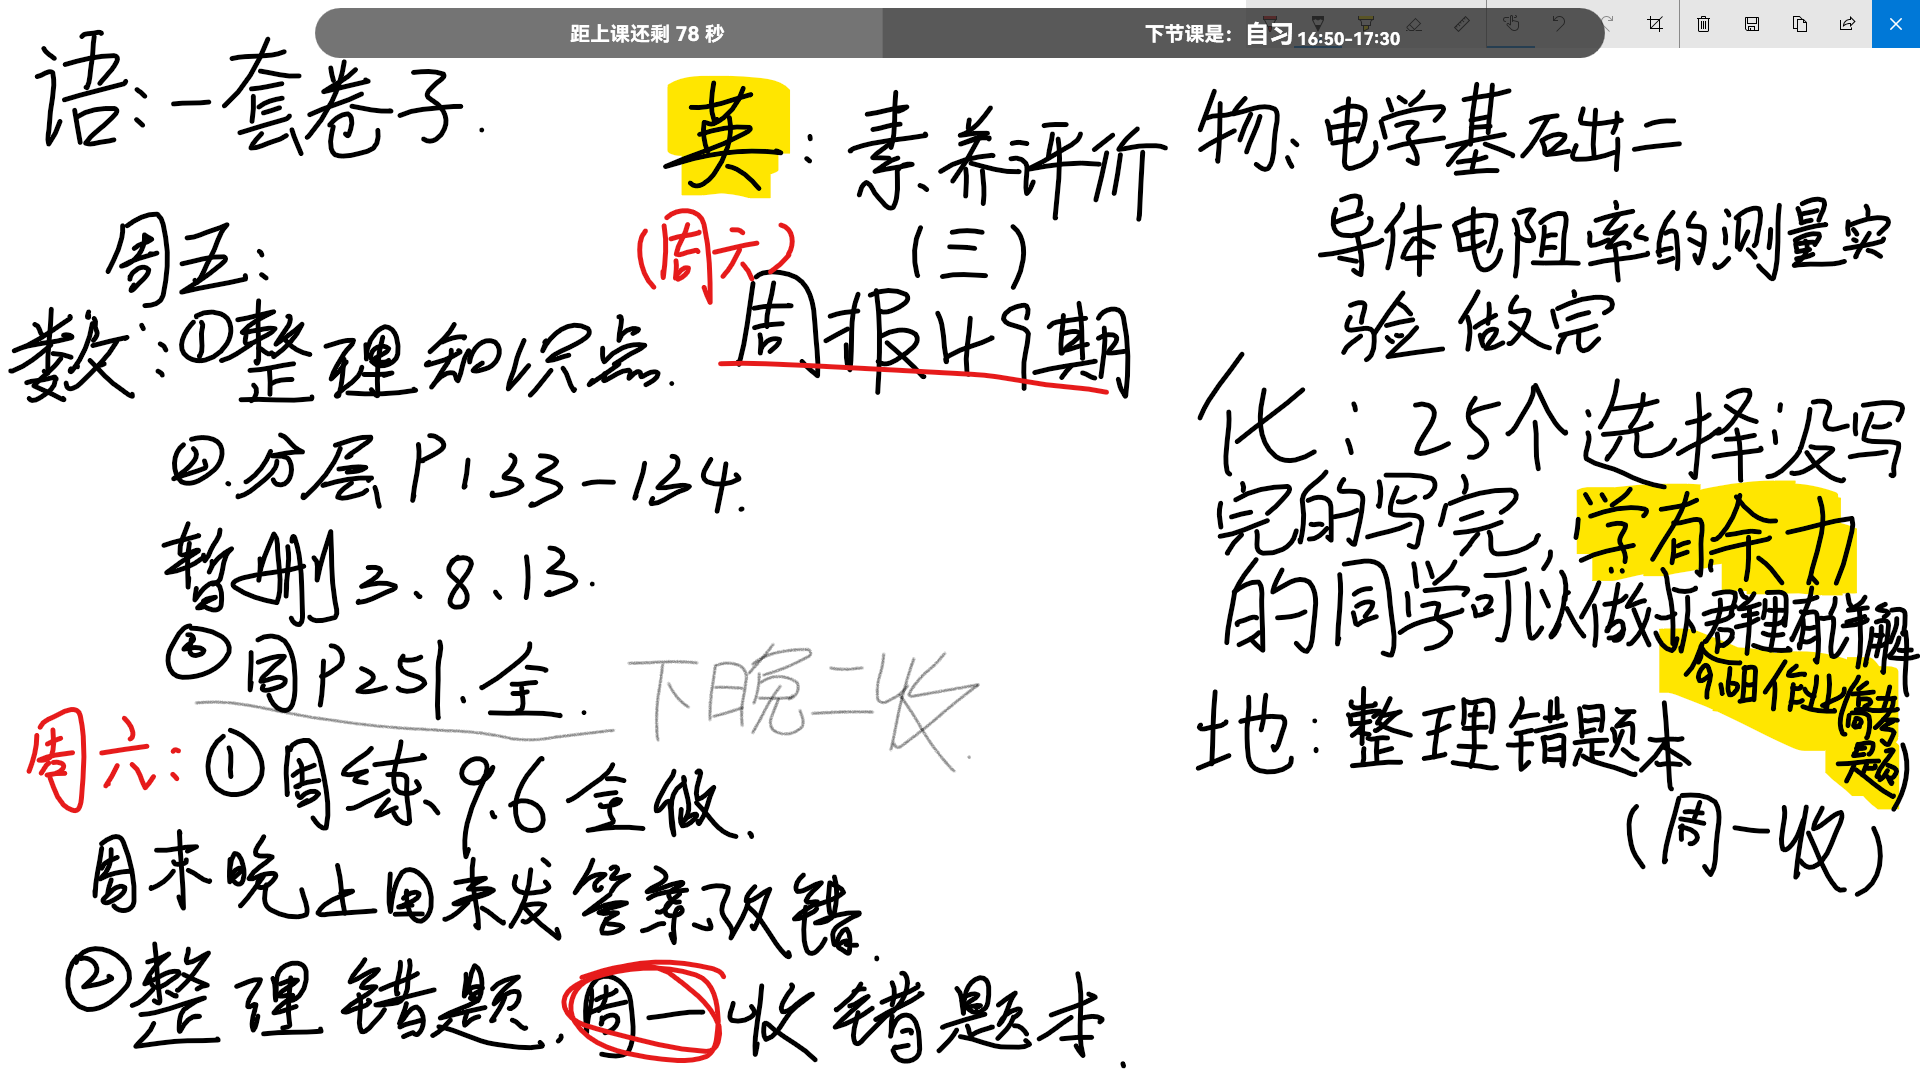 距上课还剩 78 秒
下节课是：自习 16:50-17:30
语：一套卷子.
周五：
数：①整理知识点.
②.分层P133-134.
暂删3、8、13.
③同P251.全.
下晚二收.
周六：①周练9.6全做.
周末晚上回来发答案改错.
②整理错题，周一收错题本.
英：素养评价
（三）
（周六）
周报49期
物：电学基础二
导体电阻率的测量实
验做完
化：25个选择没写
完的写完，学有余力
的同学可以做
群里有详解
9.6日作业
高考
题）
地：整理错题本
（周一收）